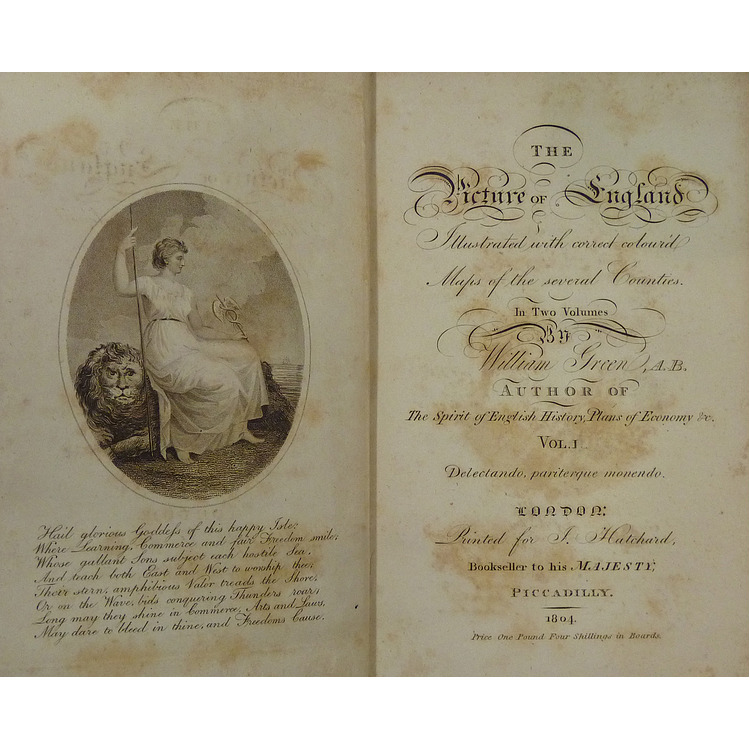 Hail glorious Goddeſs of this happy Isle;
Where Learning, Commerce and fair Freedom smile;
Whose gallant Sons subject each hostile Sea,
And teach both East and West to worship thee;
Their stern, amphibious Valor treads the Shore,
Or on the Wave, bids conquering Thunders roar;
Long may they shine in Commerce, Arts and Laws,
May dare to bleed in thine, and Freedoms Cause.
THE
Picture OF England
Illustrated with correct colour'd,
Maps of the several Counties.
In Two Volumes
BY
William Green, A.B.
AUTHOR OF
The Spirit of English History, Plans of Economy &c.
VOL.I
Delectando, pariterque monendo,
LONDON:
Printed for J. Hatchard,
Bookseller to his MAJESTY,
PICCADILLY.
1804.
Price One Pound Four Shillings in Boards.